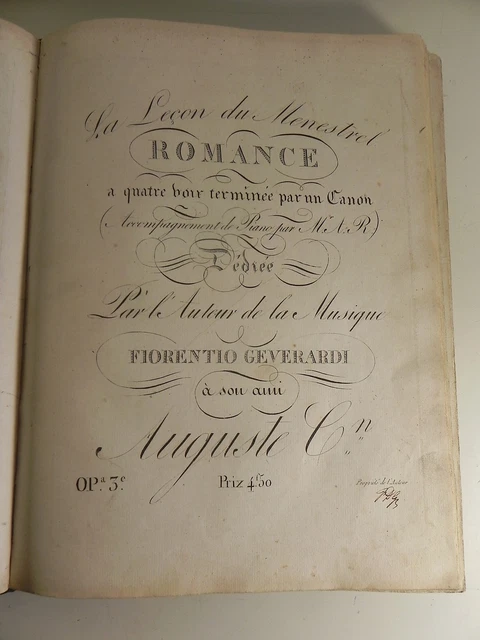 La Leçon du Menestrel
ROMANCE
a quatre voix terminée par un Canon
(Accompagnement de Piano par Mr. A. R.)
Dédiée
Par l'Auteur de la Musique
FIORENTIO GEVERARDI
à son ami
Auguste C.n
OP.a 3.e
Prix 4f.50
Propriété de l'Auteur